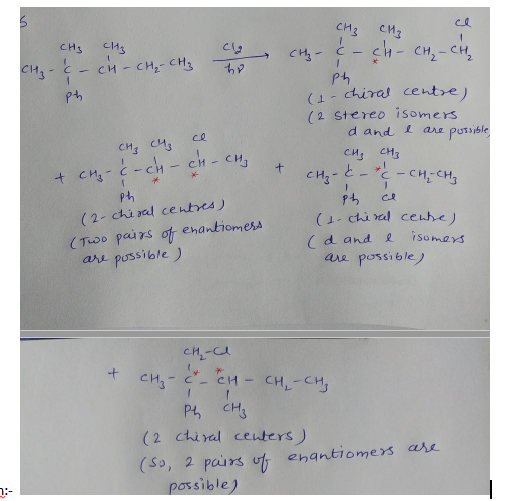 5
CH3 CH3
CH3 - C - CH - CH2 - CH3
Ph
Cl2
hν
CH3 CH3 Cl
CH3 - C - CH - CH2 - CH2
*
Ph
(1 - chiral centre)
(2 stereo isomers
d and l are possible,
CH3 CH3 Cl
+ CH3 - C - CH - CH - CH3
* *
Ph
(2 - chiral centres)
(Two pairs of enantiomers
are possible)
CH3 CH3
+ CH3 - C - *C - CH2 - CH3
Ph Cl
(1 - chiral centre)
(d and l isomers
are possible)
CH2-Cl
* *
+ CH3 - C - CH - CH2 - CH3
Ph CH3
(2 chiral centers)
(So, 2 pairs of enantiomers are
possible)
n:-